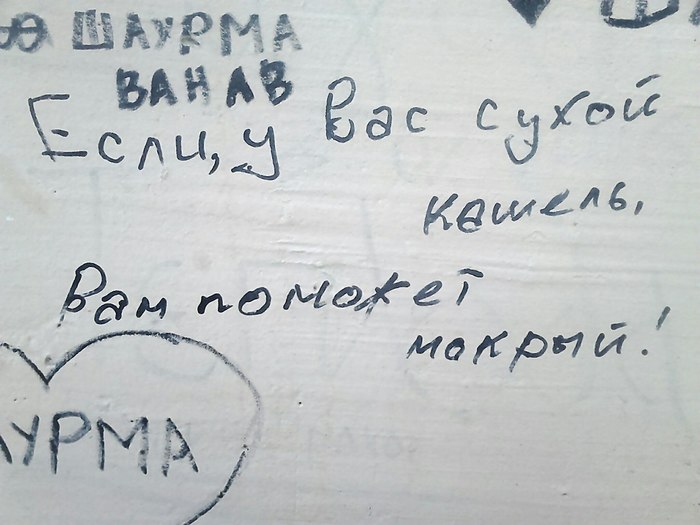 ШАУРМА
ВАНАВ
Если, у Вас сухой
кашель,
Вам поможет
мокрый!
АУРМА